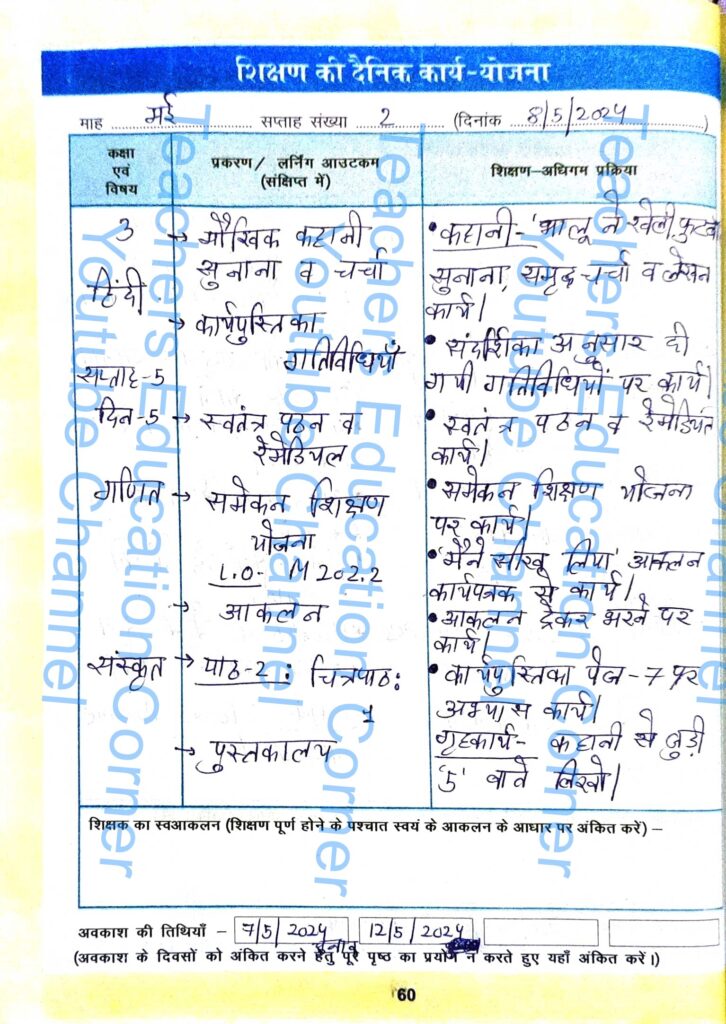 शिक्षण की दैनिक कार्य-योजना
माह मई सप्ताह संख्या 2 (दिनांक 8/5/2024)
कक्षा एवं विषय
प्रकरण/ लर्निंग आउटकम (संक्षिप्त में)
शिक्षण-अधिगम प्रक्रिया
3
हिंदी
सप्ताह-5
दिन-5
→ मौखिक कहानी
सुनाना व चर्चा
→ कार्यपुस्तिका
गतिविधियाँ
→ स्वतंत्र पठन व
रेमेडियल
• कहानी- 'भालू ने खेली फुटबॉ
सुनाना, समूह चर्चा व लेखन
कार्य।
• संदर्शिका अनुसार दी
गयी गतिविधियों पर कार्य।
• स्वतंत्र पठन व रेमेडियल
कार्य।
गणित → समेकन शिक्षण
योजना
L.O- M 202.2
→ आकलन
• समेकन शिक्षण योजना
पर कार्य।
• 'मैने सीख लिया' आकलन
कार्यपत्रक से कार्य।
• आकलन ट्रेकर भरने पर
कार्य।
संस्कृत → पाठ-2 : चित्रपाठः
1
→ पुस्तकालय
• कार्यपुस्तिका पेज-7 पर
अभ्यास कार्य।
गृहकार्य- कहानी से जुड़ी
'5' बाते लिखो।
शिक्षक का स्वआकलन (शिक्षण पूर्ण होने के पश्चात स्वयं के आकलन के आधार पर अंकित करें) –
अवकाश की तिथियाँ – 7/5/2024 12/5/2024
चुनाव
(अवकाश के दिवसों को अंकित करने हेतु पूरे पृष्ठ का प्रयोग न करते हुए यहाँ अंकित करें।)
60
Teachers Education Corner
Youtube Channel
Teachers Education Corner
Youtube Channel
Teachers Education Corner
Youtube Channel